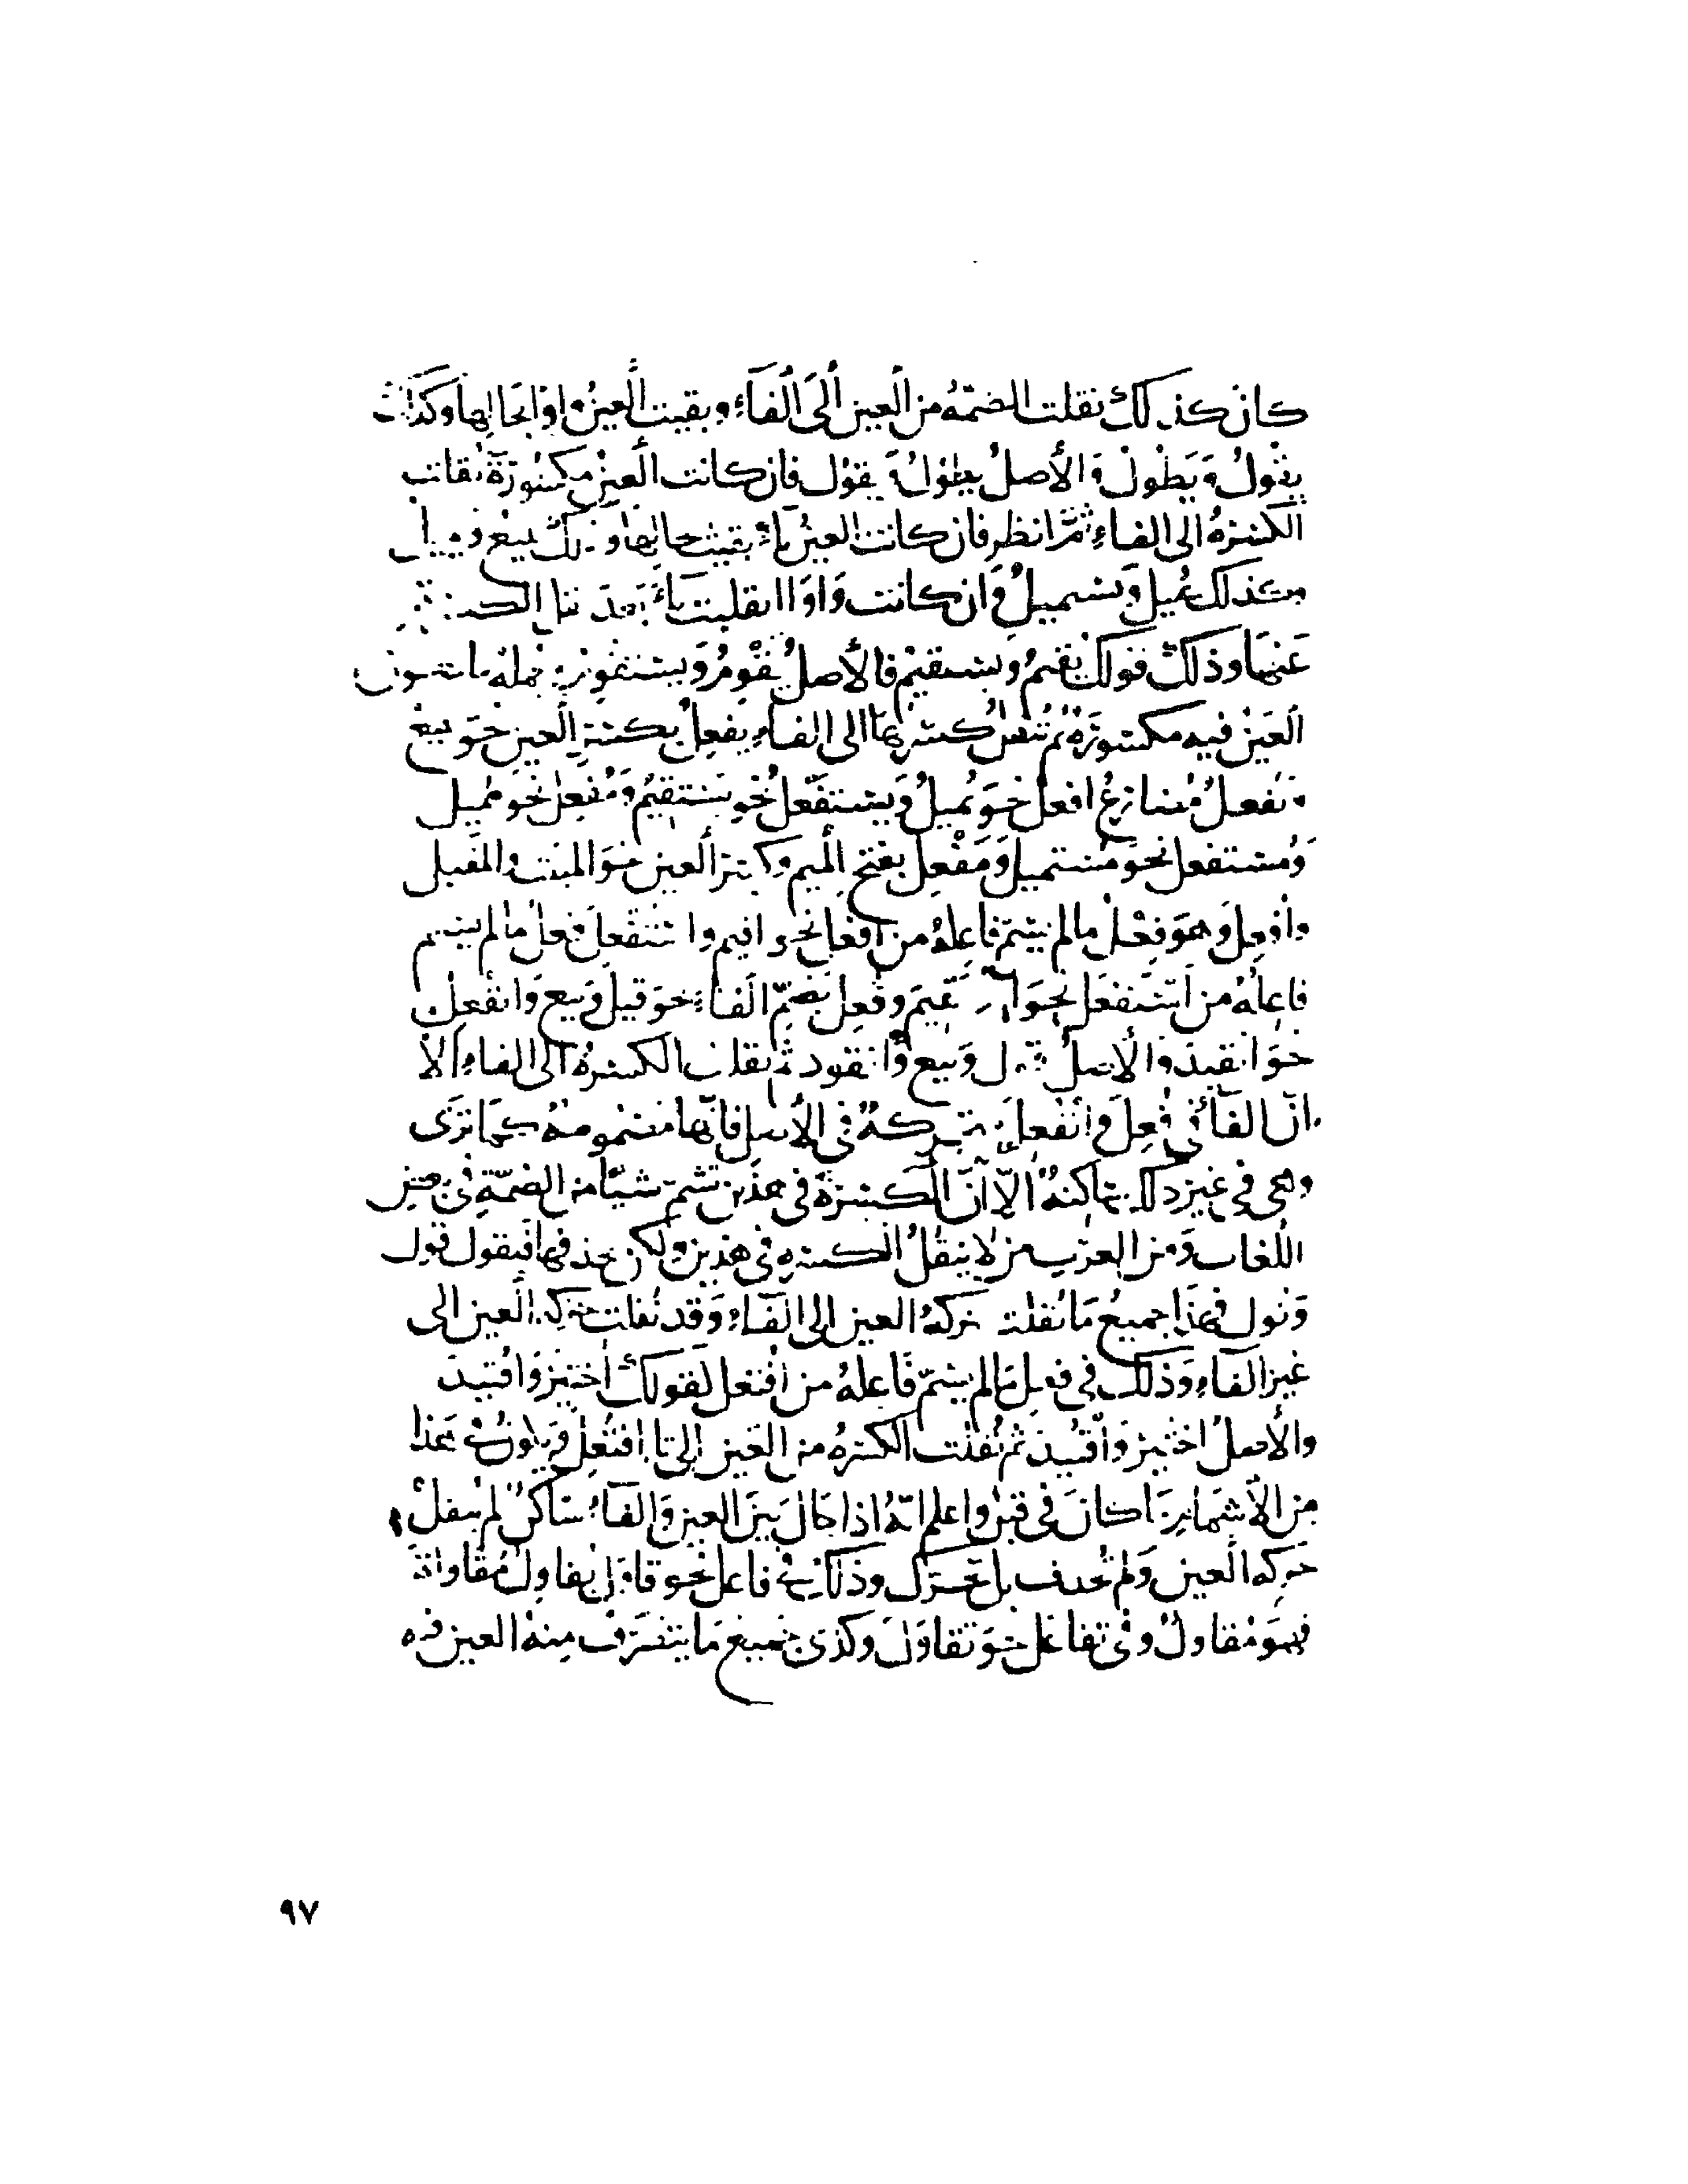 كان كذلك نقلت الضمّهُ من العين إلى الفاء وبقيت العينُ واوًا بحالها وكذلك
يقُولُ وَيَطُولُ وَالأصلُ يطْوُلُ وَيقْوُل فإن كانت العين مكسُورَةً نقلت
الكسرَهُ الى الفاءِ ثُمَّ انظر فان كانت العينُ ياءً بقيت بحالها وذلك يبيعُ
وكذلك يُميل ويستميلُ وَان كانت وَاوًا انقلبت ياءً بَعدَ نقل الكسرة
عَنهَا وذلك قولك يُقيمُ ويستقيمُ فالأصلُ يُقْوِمُ وَيستقْوِمُ فجملهُ ما تكون
العَينُ فيه مكسُورَةً ثم تُنقلُ كسرتهَا الى الفاءِ يفعِلُ بكسرِ العينِ نحوَ يبيعُ
وَيُفعِلُ مُضارعُ افعلَ نحوَ يُميلُ وَيستفْعلُ نحو يَستقيمُ وَمُفعِل نحو مُميل
وَمُستفعل نحوَ مُستميل وَمَفْعِل بفتح الميم وكسر العين نحوَ المبيت والمقيل
وأُفعِلَ وَهوَ فِعْل مالم يُسَمَّ فاعِلهُ من أفعلَ نحو اقيم واستُفعلَ فِعل ما لم يُسم
فاعِلُهُ من استَفعَلَ نحوَ استُقيمَ وفُعِل بضَمِّ الفاءِ نحوَ قيل وَبيع وَانفُعِلَ
نحوَ انقيدَ والأصلُ قُوِل وَبُيِع وَانقُود ثم نقلت الكسرةُ الى الفاءِ الا
انّ الفَآءَ في فُعِلَ وانفُعِلَ متحركةٌ في الأصل فإنّها مضمومةٌ كما ترَى
وهي في غيرِ ذلك ساكنةٌ الّا أنَّ الكسرةَ في هذين تُشَمّ شيئًا من الضمّةِ في بعض
اللُغات وَمن العرَب من لا ينقلُ الكسره في هذين ولكن يحذفها فيقول قُول
وَبُول فهذَا جميعُ مَا نُقلت حركةُ العين إلى الفَاءِ وَقد نُقلت حركة العين الى
غير الفاءِ وَذلك في فعل مَا لم يسَمّ فَاعلهُ من افتعل كقولك اُختيرَ وَاقتيد
والأصلُ اختُيِرَ وَاُقتُوِدَ ثم نُقلت الكسرهُ من العَين إلى تاء افتُعِل وَيكونُ في هَذا
من الأشمَامِ مَا كانَ في قبلُ واعلم انّهُ اذا حَالَ بَينَ العين وَالفَاءِ ساكنٌ لم ينقل
حركه العين وَلم تُحذف بل تحرّك وذلك في فاعل نحو قاوَل يُقاوِلُ مُقاولة
فهوَ مُقاولٌ وفي تفاعَل نحوَ تقاوَلَ وكذى جَميعُ مَا يتصَرَّف مِنهُ العين فيه
٩٧